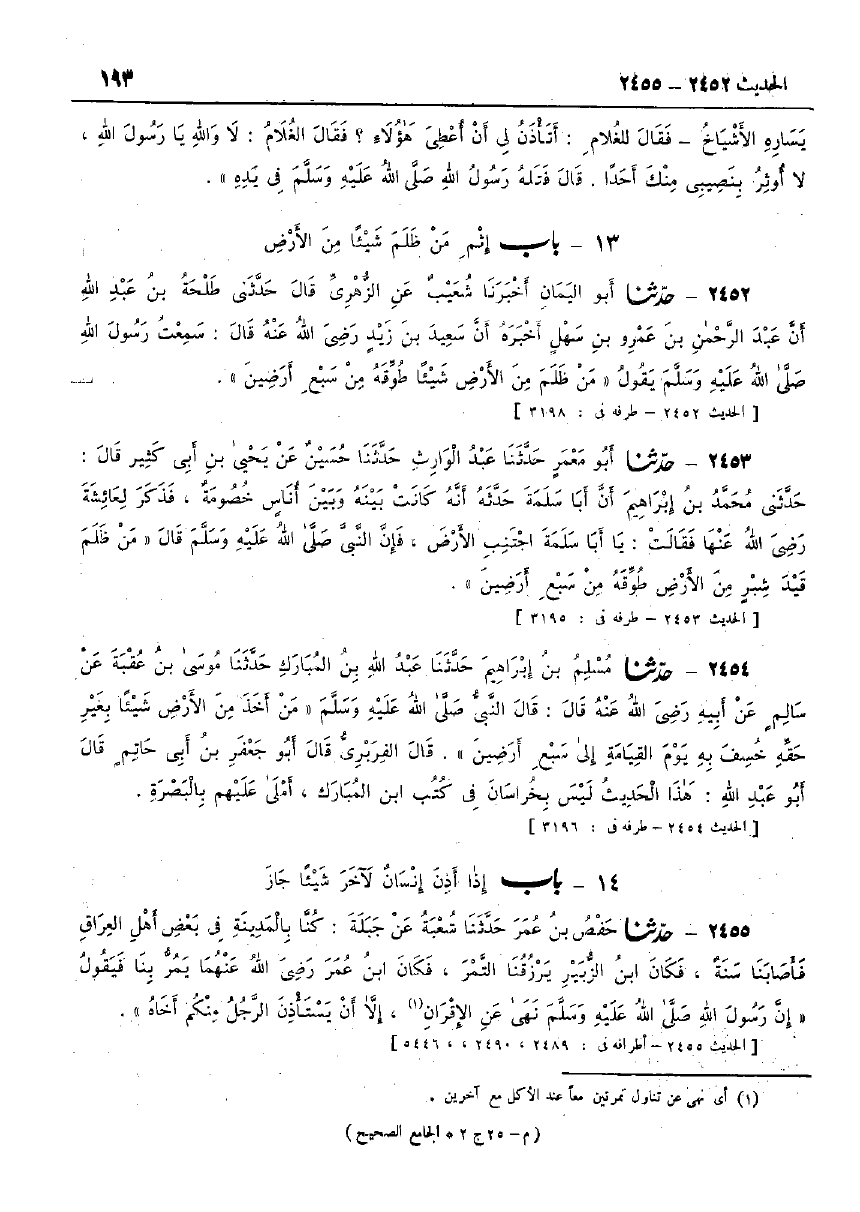 الحديث ٢٤٥٢ – ٢٤٥٥
١٩٣
يَسَارِهِ الأَشْيَاخُ – فَقَالَ لِلغُلَامِ : أَتَأْذَنُ لِى أَنْ أُعْطِىَ هَٰؤُلَاءِ ؟ فَقَالَ الغُلَامُ : لَا وَاللهِ يَا رَسُولَ اللهِ ،
لا أُوثِرُ بِنَصِيبِى مِنْكَ أَحَدًا . قَالَ فَتَلَهُ رَسُولُ اللهِ صَلَّى اللهُ عَلَيْهِ وَسَلَّمَ فِى يَدِهِ » .
١٣ – باب إِثْمِ مَنْ ظَلَمَ شَيْئًا مِنَ الأَرْضِ
٢٤٥٢ – حدّثنا أبو اليَمَانِ أَخْبَرَنَا شُعَيْبٌ عَنِ الزُّهْرِىِّ قَالَ حَدَّثَنِى طَلْحَةُ بنُ عَبْدِ اللهِ
أَنَّ عَبْدَ الرَّحْمٰنِ بنَ عَمْرِو بنِ سَهْلٍ أَخْبَرَهُ أَنَّ سَعِيدَ بنَ زَيْدٍ رَضِىَ اللهُ عَنْهُ قَالَ : سَمِعْتُ رَسُولَ اللهِ
صَلَّى اللهُ عَلَيْهِ وَسَلَّمَ يَقُولُ « مَنْ ظَلَمَ مِنَ الأَرْضِ شَيْئًا طُوِّقَهُ مِنْ سَبْعِ أَرَضِينَ » .
[ الحديث ٢٤٥٢ – طرفه فى : ٣١٩٨ ]
٢٤٥٣ – حدّثنا أَبُو مَعْمَرٍ حَدَّثَنَا عَبْدُ الْوَارِثِ حَدَّثَنَا حُسَيْنٌ عَنْ يَحْيىٰ بنِ أَبِى كَثِيرٍ قَالَ :
حَدَّثَنِى مُحَمَّدُ بنُ إِبْرَاهِيمَ أَنَّ أَبَا سَلَمَةَ حَدَّثَهُ أَنَّهُ كَانَتْ بَيْنَهُ وَبَيْنَ أُنَاسٍ خُصُومَةٌ ، فَذَكَرَ لِعَائِشَةَ
رَضِىَ اللهُ عَنْهَا فَقَالَتْ : يَا أَبَا سَلَمَةَ اجْتَنِبِ الأَرْضَ ، فَإِنَّ النَّبِىَّ صَلَّى اللهُ عَلَيْهِ وَسَلَّمَ قَالَ « مَنْ ظَلَمَ
قِيْدَ شِبْرٍ مِنَ الأَرْضِ طُوِّقَهُ مِنْ سَبْعِ أَرَضِينَ » .
[ الحديث ٢٤٥٣ – طرفه فى : ٣١٩٥ ]
٢٤٥٤ – حدّثنا مُسْلِمُ بنُ إِبْرَاهِيمَ حَدَّثَنَا عَبْدُ اللهِ بنُ المُبَارَكِ حَدَّثَنَا مُوسَىٰ بنُ عُقْبَةَ عَنْ
سَالِمٍ عَنْ أَبِيهِ رَضِىَ اللهُ عَنْهُ قَالَ : قَالَ النَّبِىُّ صَلَّى اللهُ عَلَيْهِ وَسَلَّمَ « مَنْ أَخَذَ مِنَ الأَرْضِ شَيْئًا بِغَيْرِ
حَقِّهِ خُسِفَ بِهِ يَوْمَ القِيَامَةِ إِلىٰ سَبْعِ أَرَضِينَ » . قَالَ الفِرَبْرِىُّ قَالَ أَبُو جَعْفَرِ بنُ أَبِى حَاتِمٍ قَالَ
أَبُو عَبْدِ اللهِ : هٰذَا الْحَدِيثُ لَيْسَ بِخُرَاسَانَ فِى كُتُبِ ابن المُبَارَك ، أَمْلَىٰ عَلَيْهِم بِالْبَصْرَةِ .
[ الحديث ٢٤٥٤ – طرفه فى : ٣١٩٦ ]
١٤ – باب إِذَا أَذِنَ إِنْسَانٌ لآخَرَ شَيْئًا جَازَ
٢٤٥٥ – حدّثنا حَفْصُ بنُ عُمَرَ حَدَّثَنَا شُعْبَةُ عَنْ جَبَلَةَ : كُنَّا بِالْمَدِينَةِ فِى بَعْضِ أَهْلِ العِرَاقِ
فَأَصَابَنَا سَنَةٌ ، فَكَانَ ابنُ الزُّبَيْرِ يَرْزُقُنَا التَّمْرَ ، فَكَانَ ابنُ عُمَرَ رَضِىَ اللهُ عَنْهُمَا يَمُرُّ بِنَا فَيَقُولُ
« إِنَّ رَسُولَ اللهِ صَلَّى اللهُ عَلَيْهِ وَسَلَّمَ نَهَىٰ عَنِ الإِقْرَانِ(١) ، إِلَّا أَنْ يَسْتَأْذِنَ الرَّجُلُ مِنْكُم أَخَاهُ » .
[ الحديث ٢٤٥٥ – أطرافه فى : ٢٤٨٩ ، ٢٤٩٠ ، ، ٥٤٤٦ ]
(١) أى نهى عن تناول تمرتين معاً عند الأكل مع آخرين .
( م – ٢٥ ج ٢ * الجامع الصحيح )